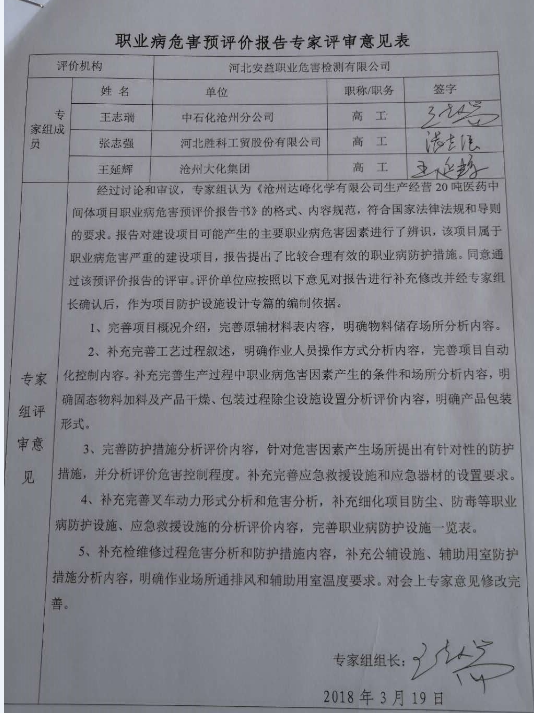 职业病危害预评价报告专家评审意见表
评价机构 河北安益职业危害检测有限公司
专家组成员 姓名 单位 职称/职务 签字
王志瑞 中石化沧州分公司 高工
张志强 河北胜科工贸股份有限公司 高工
王延辉 沧州大化集团 高工 王延辉
专家组评审意见
经过讨论和审议，专家组认为《沧州达峰化学有限公司生产经营20吨医药中
间体项目职业病危害预评价报告书》的格式、内容规范，符合国家法律法规和导则
的要求。报告对建设项目可能产生的主要职业病危害因素进行了辨识，该项目属于
职业病危害严重的建设项目，报告提出了比较合理有效的职业病防护措施。同意通
过该预评价报告的评审。评价单位应按照以下意见对报告进行补充修改并经专家组
长确认后，作为项目防护设施设计专篇的编制依据。
1、完善项目概况介绍，完善原辅材料表内容，明确物料储存场所分析内容。
2、补充完善工艺过程叙述，明确作业人员操作方式分析内容，完善项目自动
化控制内容。补充完善生产过程中职业病危害因素产生的条件和场所分析内容，明
确固态物料加料及产品干燥、包装过程除尘设施设置分析评价内容，明确产品包装
形式。
3、完善防护措施分析评价内容，针对危害因素产生场所提出有针对性的防护
措施，并分析评价危害控制程度。补充完善应急救援设施和应急器材的设置要求。
4、补充完善叉车动力形式分析和危害分析，补充细化项目防尘、防毒等职业
病防护设施、应急救援设施的分析评价内容，完善职业病防护设施一览表。
5、补充检维修过程危害分析和防护措施内容，补充公辅设施、辅助用室防护
措施分析内容，明确作业场所通排风和辅助用室温度要求。对会上专家意见修改完
善。
专家组组长：
2018年3月19日